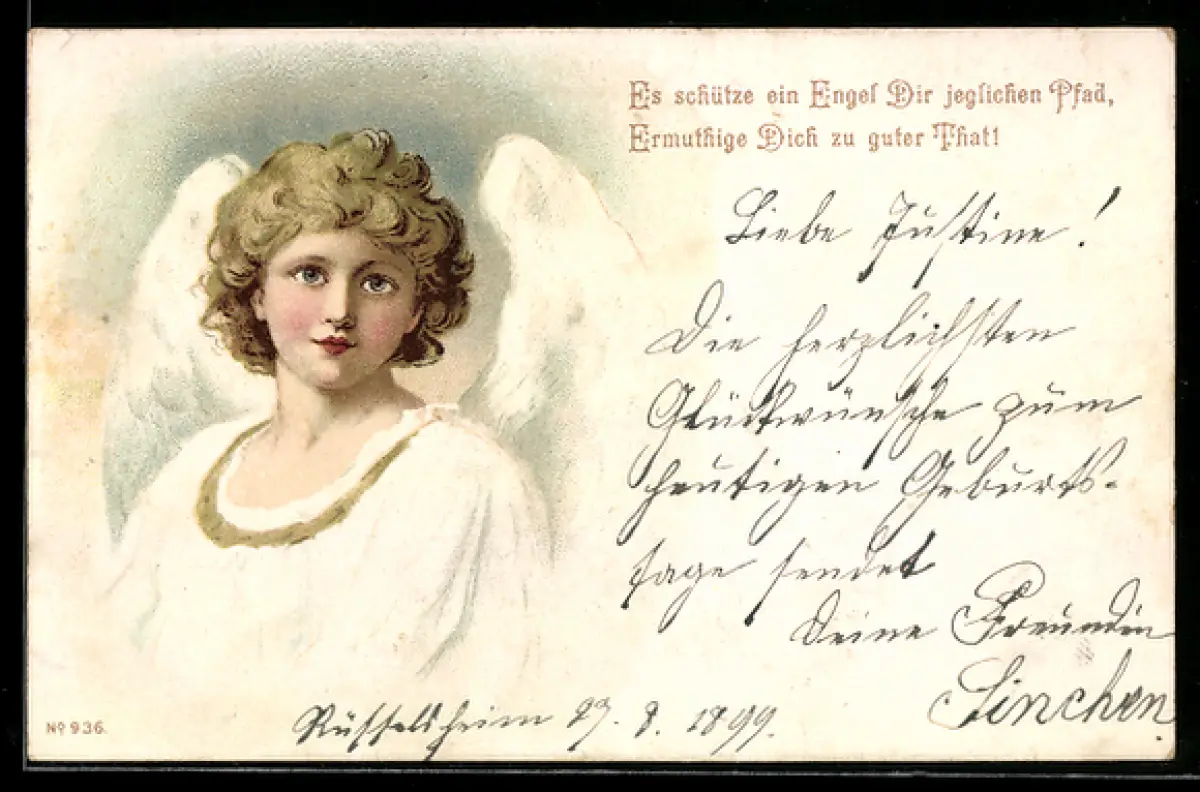 Es schütze ein Engel Dir jeglichen Pfad,
Ermuthige Dich zu guter That!
Liebe Justine!
Die herzlichsten
Glückwünsche zum
heutigen Geburts-
tage sendet
Deine Freundin
Linchen.
Rüsselsheim 27. 8. 1899.
No 936.